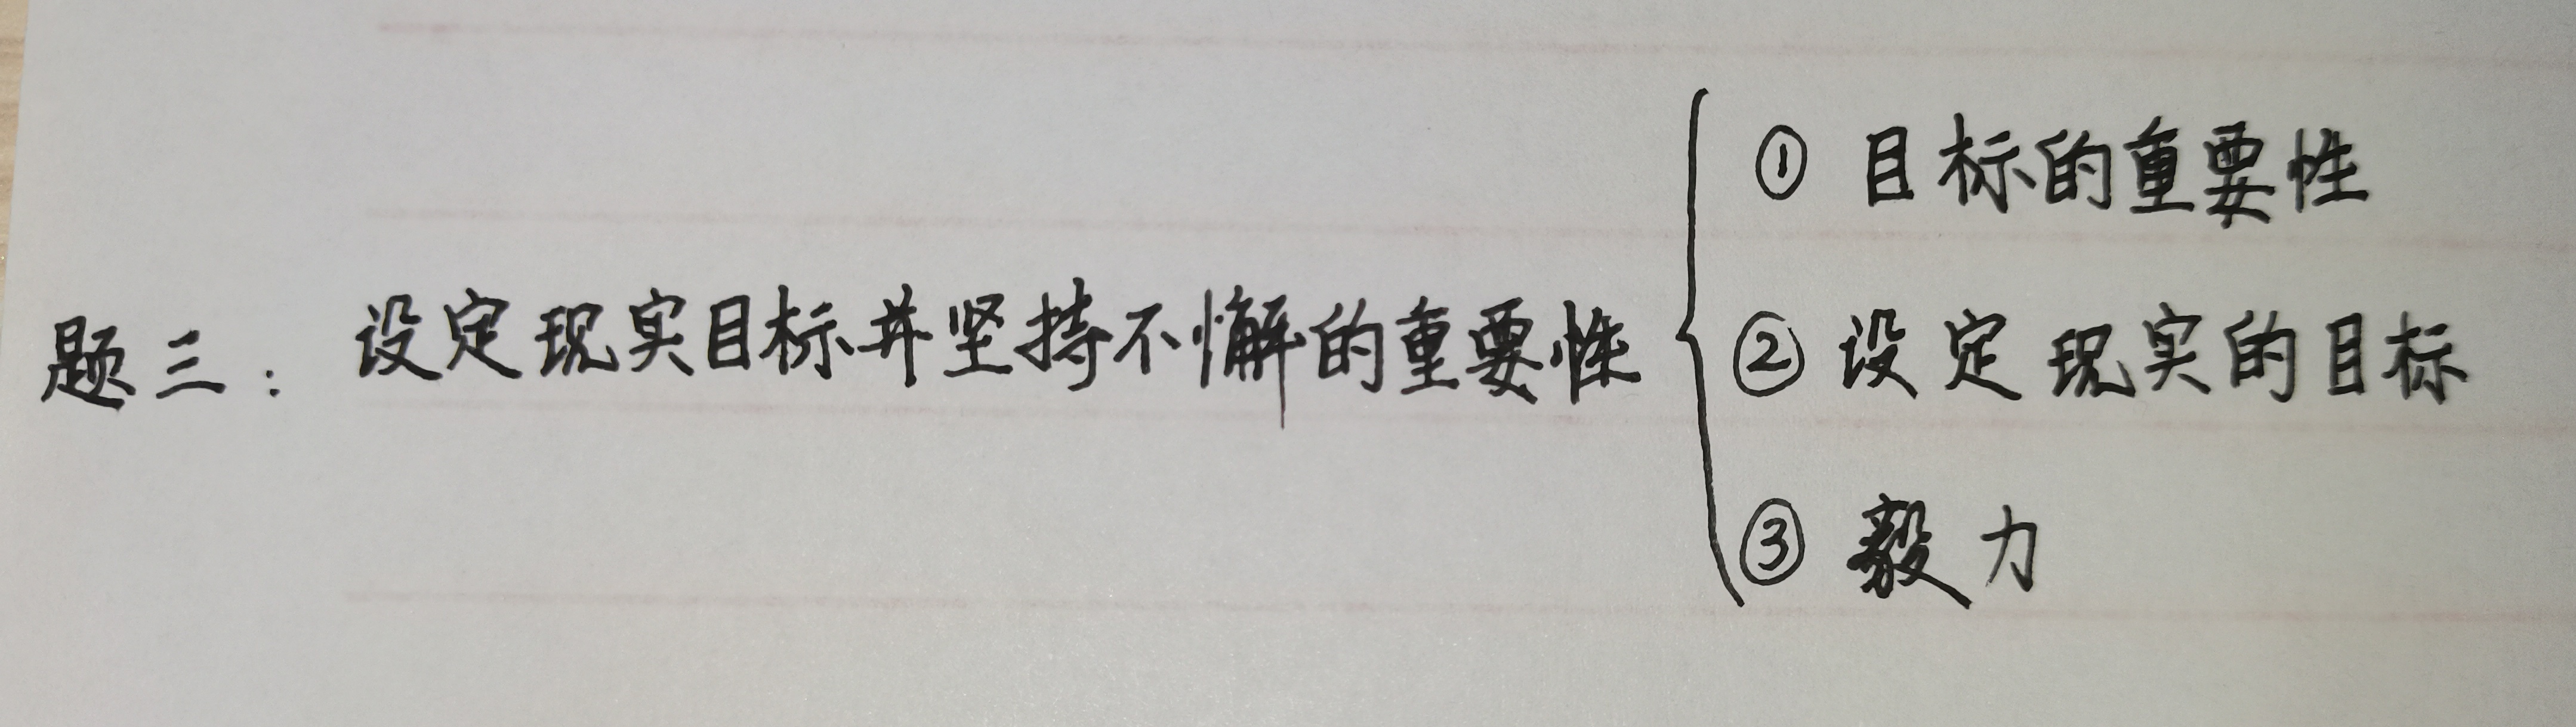 题三：设定现实目标并坚持不懈的重要性
① 目标的重要性
② 设定现实的目标
③ 毅力